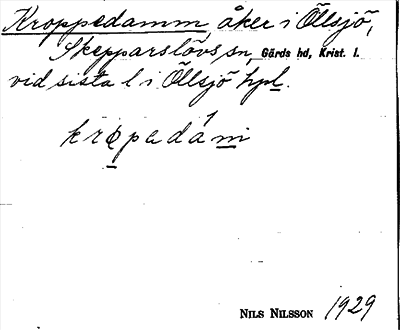 Kroppedamm, åker i Öllsjö,
Skepparslövs sn, Gärds hd, Krist. l.
vid sista l i Öllsjö hpl.
kropedám
NILS NILSSON 1929